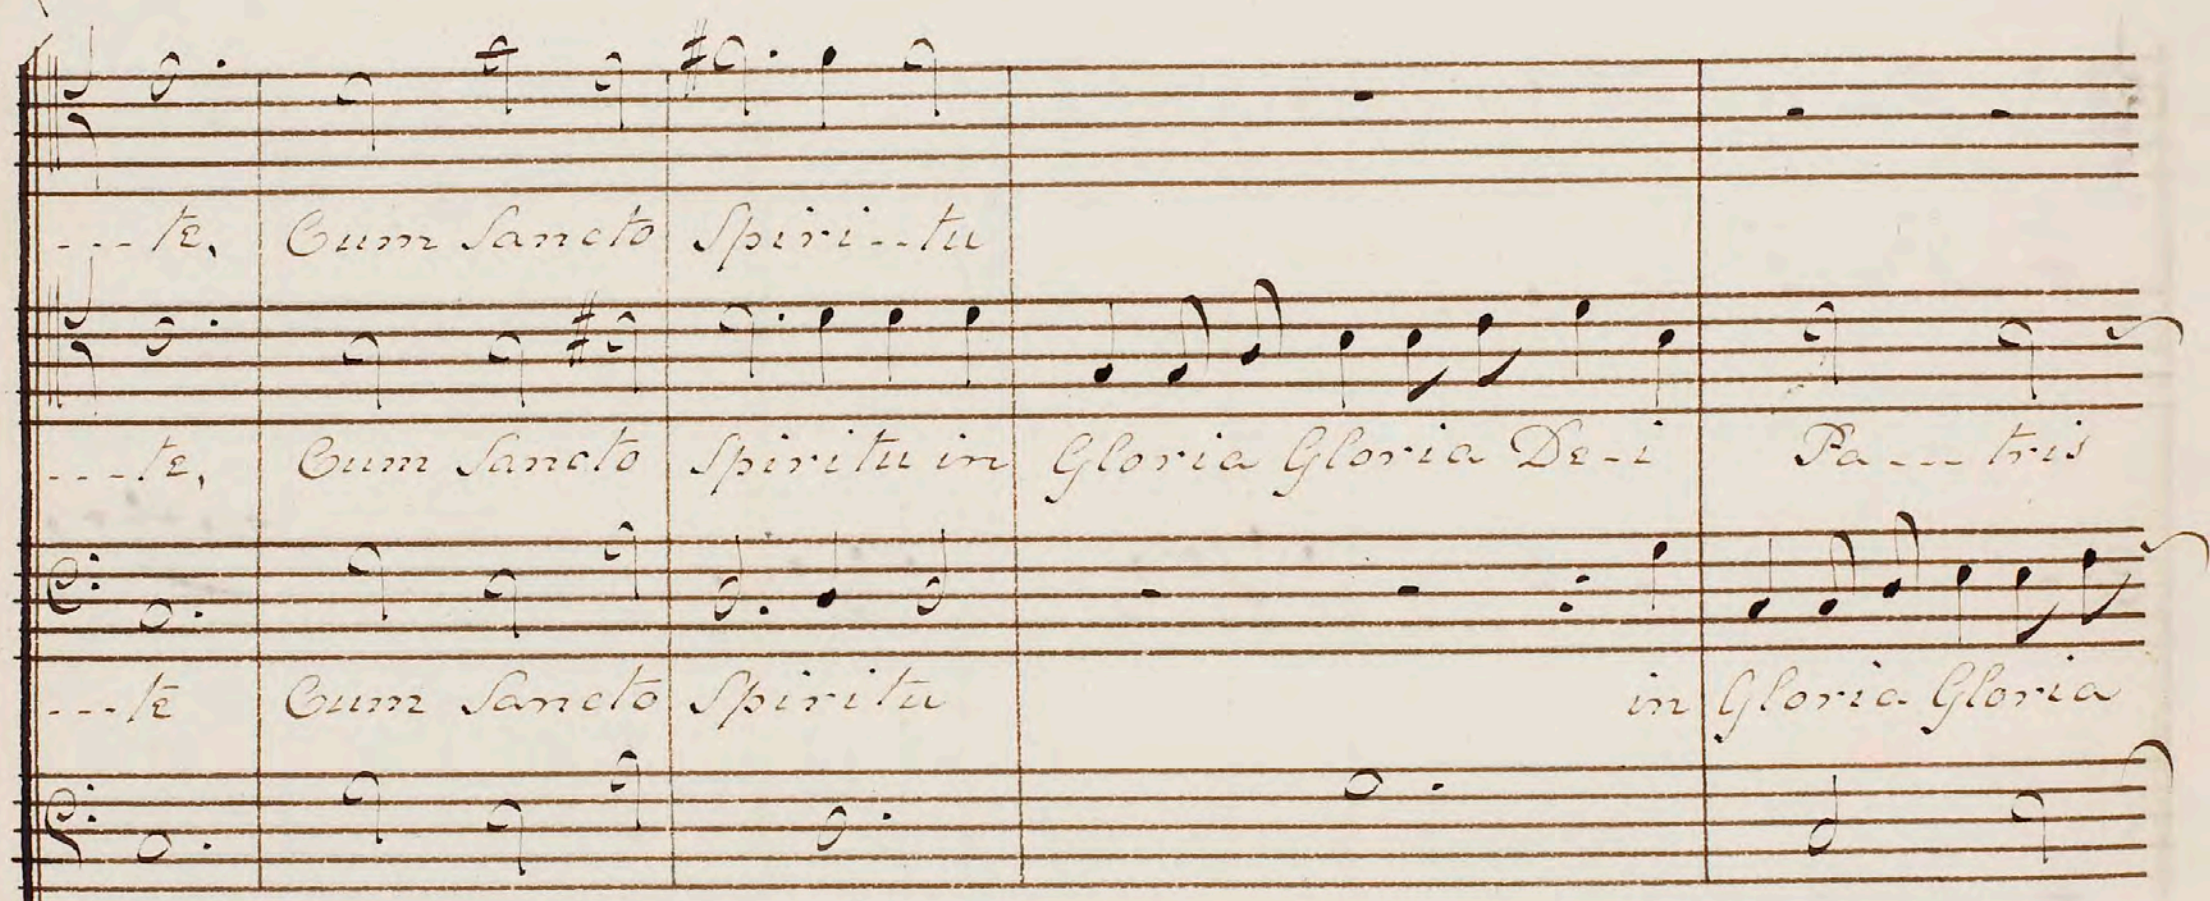 ---te, Cum Sancto Spiri--tu
---te, Cum Sancto Spiritu in Gloria Gloria De-i Pa---tris
---te Cum Sancto Spiritu in Gloria Gloria